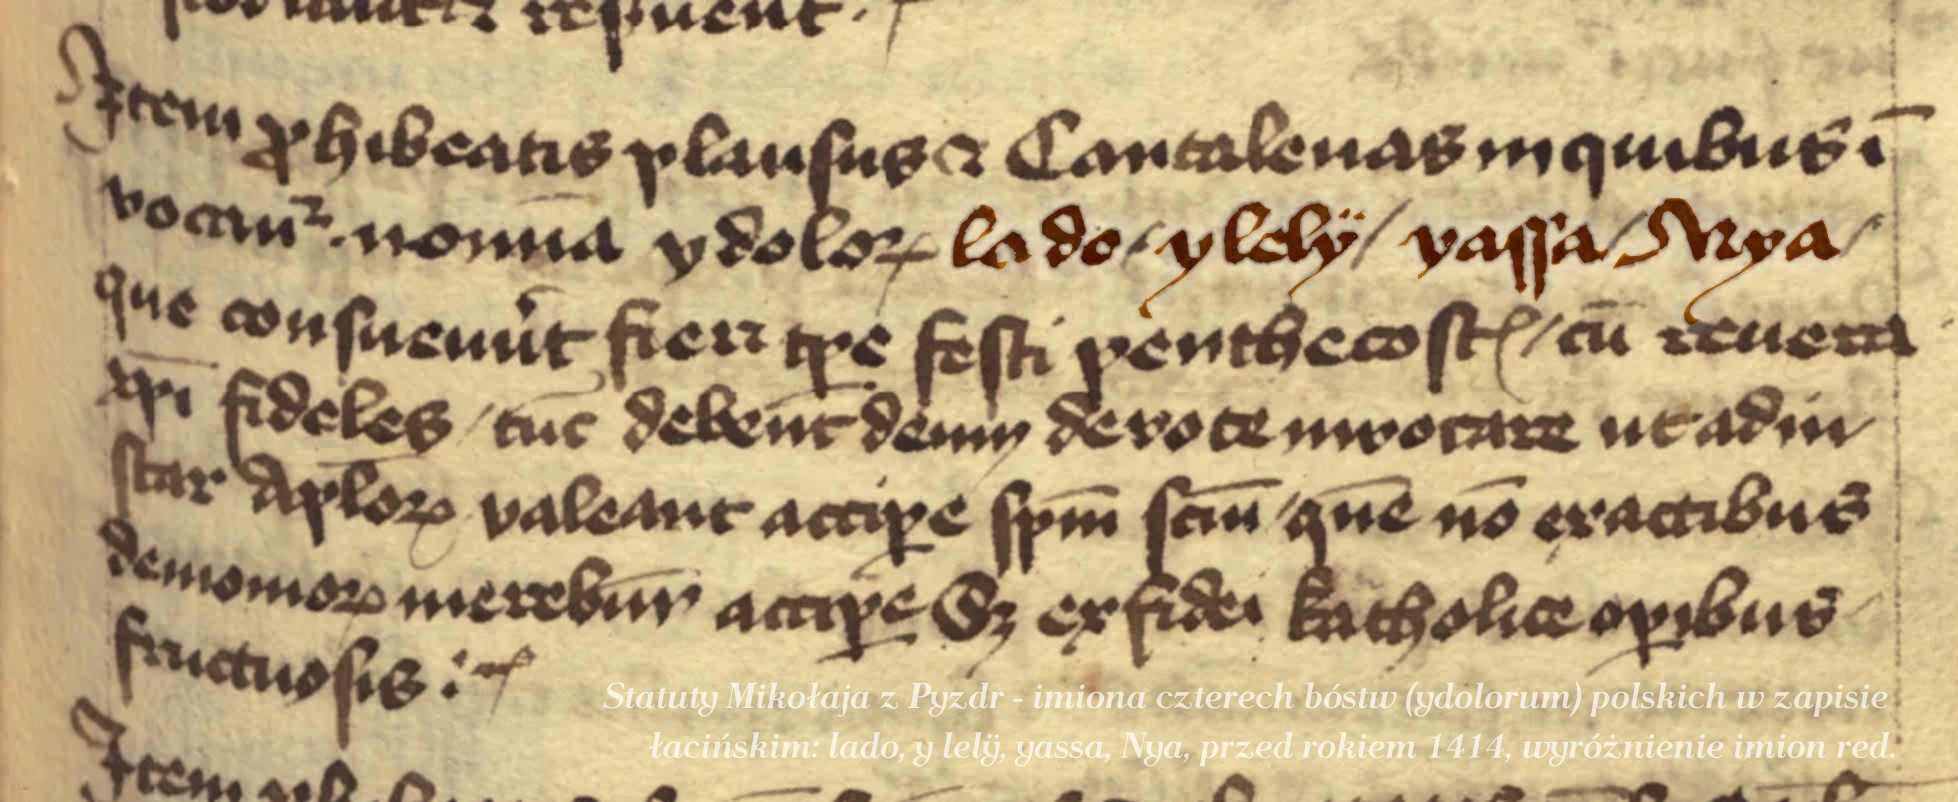 respuent ·
Item ꝓhibeatis plausus et Cantalenas in quibus ī
vocant᷑ · noīna ydoloꝝ lado / ylelÿ / yassa / Nya /
que consueuer̄t fieri tꝑe festi penthecost / cū reuera
xp̄i fideles / tūc debent deum deuote inuocare ut ad in
star Apl̄oꝝ valeant acciꝑe sp̄m sc̄m / quē nō ex actibus
demonioꝝ merebūr acciꝑe Sꝫ ex fidei katholice oꝑibus /
fructuosis :
Statuty Mikołaja z Pyzdr - imiona czterech bóstw (ydolorum) polskich w zapisie
łacińskim: lado, y lelÿ, yassa, Nya, przed rokiem 1414, wyróżnienie imion red.
Item